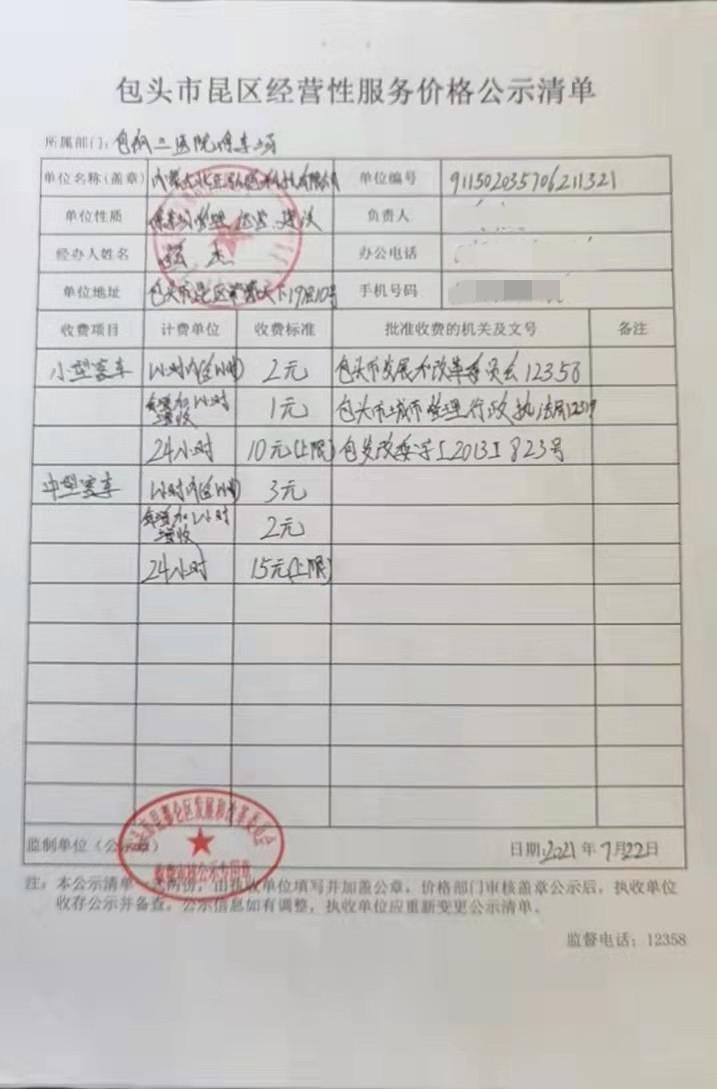 包头市昆区经营性服务价格公示清单
所属部门：包钢三医院停车场
单位名称(盖章) 有限公司 单位编号 911502035706211321
单位性质 停车场管理 运营 建设 负责人
经办人姓名 杰 办公电话
单位地址 包头市昆区 天下19层10号 手机号码
收费项目 计费单位 收费标准 批准收费的机关及文号 备注
小型客车 1小时内(含1小时) 2元 包头市发展和改革委员会12358
每增加1小时增收 1元 包头市城市管理行政执法局12319
24小时 10元(上限) 包发改委字[2013]823号
中型客车 1小时内(含1小时) 3元
每增加1小时增收 2元
24小时 15元(上限)
包头市昆都仑区发展和改革委员会
监制单位（公示章） 日期:2021年7月22日
注：本公示清单一式两份，由执收单位填写并加盖公章，价格部门审核盖章公示后，执收单位
收存公示并备查。公示信息如有调整，执收单位应重新变更公示清单。
监督电话：12358